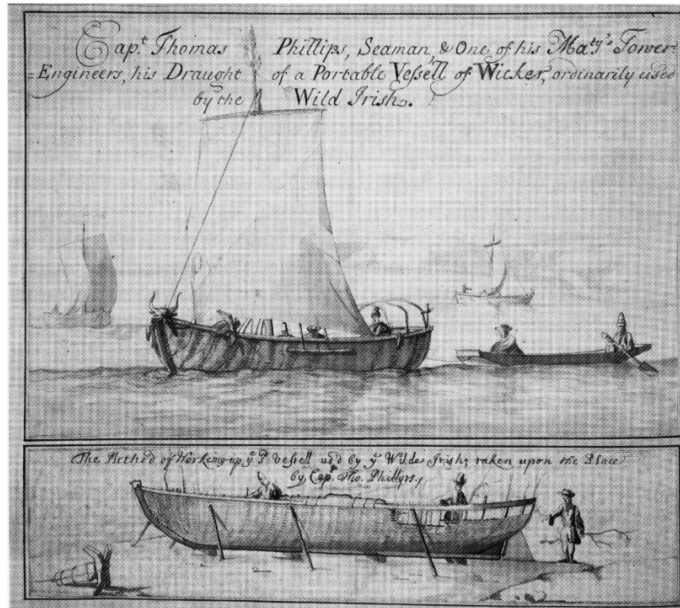 Capt. Thomas Phillips, Seaman & One of his Maty's Tower
=Engineers, his Draught of a Portable Vessell of Wicker, ordinarily used
by the Wild Irish.
The Method of Working up ye P. Vessell us'd by ye Wilde Irish; taken upon the Place
by Capt. Tho. Phillips,